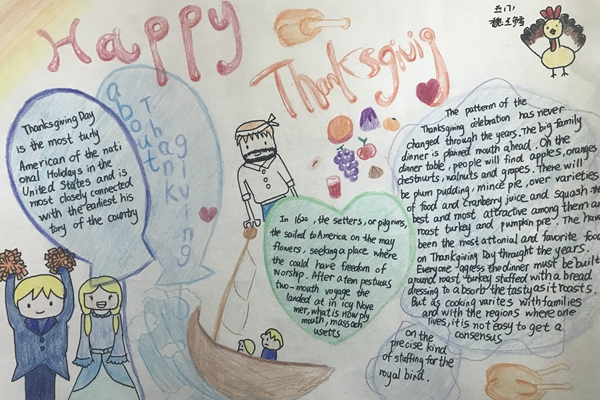 Happy
Thanksgivig
about
Thanksgiving
Thanksgiving Day
is the most turly
American of the nati
onal Holidays in the
United States and is
most closely connected
with the earliest his
tory of the country
In 1620, the setters, or pilgrims,
the sailed to America on the may
flowers, seeking a place where
the could have freedom of
worship. After a tem pestuous
two-mouth voyage the
landed at in icy Nove
mer, what is now ply
mouth, massach
usetts
The pattern of the
Thanksgiving celebration has never
changed through the years. The big family
dinner is planned mouth ahead. On the
dinner table, people will find apples, oranges
chestnurts, walnuts and grapes. There will
be plum pudding, mince pie, over varieties
of food and cranberry juice and squash the
best and most attractive among them are
roast turkey and pumpkin pie. The have
been the most attonial and favorite food
on Thanksgiving Day throught the years.
Everyone agress the dinner must be built
around roast turked stuffed with a bread
dressing to absorb the tasty as it roasts.
But as cooking varites with families
and with the regions where one
lives, it is not easy to get a
consensus
on the
precise kind
of staffing for the
royal bird.